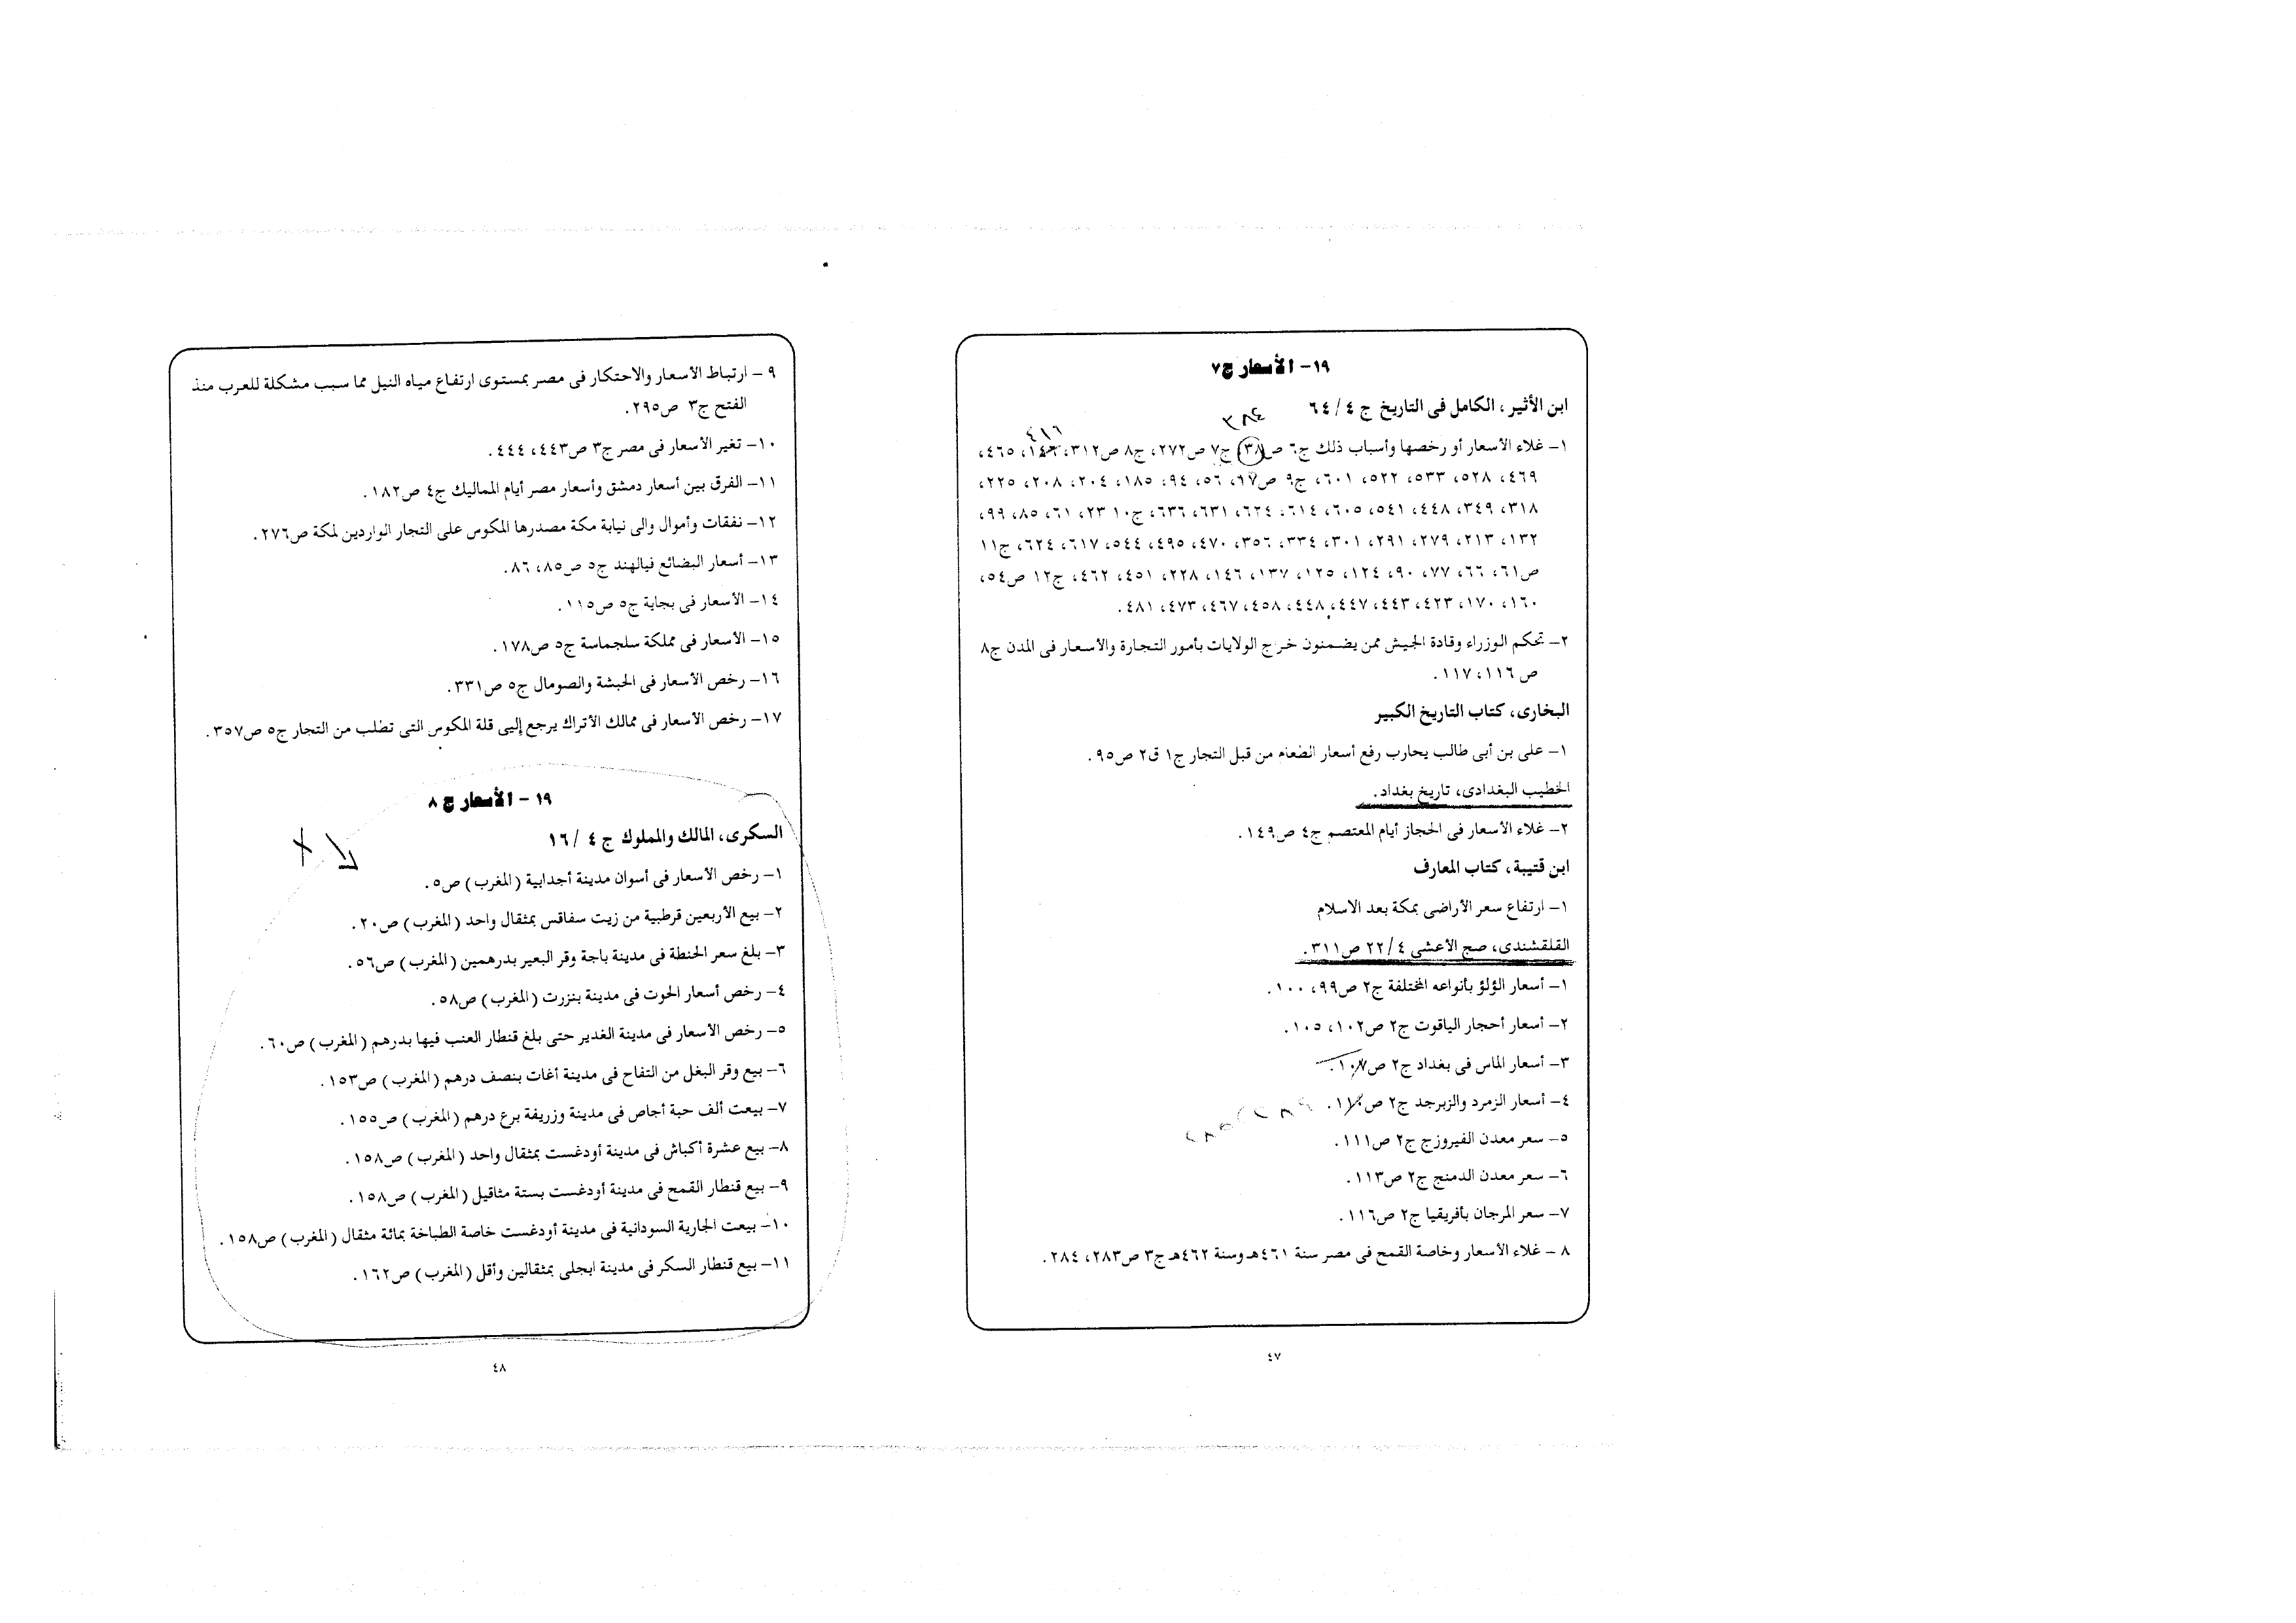 ١٩- الأسعار ج٧
ابن الأثير، الكامل فى التاريخ ج ٤ / ٦٤
٣٨٤
٤١٦
١- غلاء الأسعار أو رخصها وأسباب ذلك ج٦ ص٣٨، ج٧ ص٢٧٢، ج٨ ص٣١٢، ١٤٦، ٤٦٥،
٤٦٩، ٥٢٨، ٥٣٣، ٥٢٢، ٦٠١، ج٩ ص١٧، ٥٦، ٩٤، ١٨٥، ٢٠٤، ٢٠٨، ٢٢٥،
٣١٨، ٣٤٩، ٤٤٨، ٥٤١، ٦٠٥، ٦١٤، ٦٢٤، ٦٣١، ٦٣٦، ج١٠ ٢٣، ٦١، ٨٥، ٩٩،
١٣٢، ٢١٣، ٢٧٩، ٢٩١، ٣٠١، ٣٣٤، ٣٥٦، ٤٧٠، ٤٩٥، ٥٤٤، ٦١٧، ٦٢٤، ج١١
ص٦١، ٦٦، ٧٧، ٩٠، ١٢٤، ١٢٥، ١٣٧، ١٤٦، ٢٢٨، ٤٥١، ٤٦٢، ج١٢ ص٥٤،
١٦٠، ١٧٠، ٤٢٣، ٤٤٣، ٤٤٧، ٤٤٨، ٤٥٨، ٤٦٧، ٤٧٣، ٤٨١.
٢- تحكم الوزراء وقادة الجيش ممن يضمنون خراج الولايات بأمور التجارة والأسعار فى المدن ج٨
ص ١١٦، ١١٧.
البخارى، كتاب التاريخ الكبير
١- على بن أبى طالب يحارب رفع أسعار الطعام من قبل التجار ج١ ق٢ ص٩٥.
الخطيب البغدادى، تاريخ بغداد.
٢- غلاء الأسعار فى الحجاز أيام المعتصم ج٤ ص١٤٩.
ابن قتيبة، كتاب المعارف
١- ارتفاع سعر الأراضى بمكة بعد الاسلام
القلقشندى، صبح الأعشى ٢٢/٤ ص٣١١.
١- أسعار الؤلؤ بأنواعه المختلفة ج٢ ص٩٩، ١٠٠.
٢- أسعار أحجار الياقوت ج٢ ص١٠٢، ١٠٥.
٣- أسعار الماس فى بغداد ج٢ ص١٠٧.
٤- أسعار الزمرد والزبرجد ج٢ ص١١٠.
٥- سعر معدن الفيروزج ج٢ ص١١١.
٦- سعر معدن الدمنج ج٢ ص١١٣.
٧- سعر المرجان بأفريقيا ج٢ ص١١٦.
٨ - غلاء الأسعار وخاصة القمح فى مصر سنة ٤٦١هـ وسنة ٤٦٢هـ ج٣ ص٢٨٣، ٢٨٤.
٤٧
٩ - ارتباط الأسعار والاحتكار فى مصر بمستوى ارتفاع مياه النيل مما سبب مشكلة للعرب منذ
الفتح ج٣ ص٢٩٥.
١٠- تغير الأسعار فى مصر ج٣ ص٤٤٣، ٤٤٤.
١١- الفرق بين أسعار دمشق وأسعار مصر أيام المماليك ج٤ ص١٨٢.
١٢- نفقات وأموال والى نيابة مكة مصدرها المكوس على التجار الواردين لمكة ص٢٧٦.
١٣- أسعار البضائع فيالهند ج٥ ص٨٥، ٨٦.
١٤- الأسعار فى بجاية ج٥ ص١١٥.
١٥- الأسعار فى مملكة سلجماسة ج٥ ص١٧٨.
١٦- رخص الأسعار فى الحبشة والصومال ج٥ ص٣٣١.
١٧- رخص الأسعار فى ممالك الأتراك يرجع إليى قلة المكوس التى تطلب من التجار ج٥ ص٣٥٧.
١٩ - الأسعار ج ٨
السكرى، المالك والمملوك ج ٤ / ١٦
١- رخص الأسعار فى أسوان مدينة أجدابية (المغرب) ص٥.
٢- بيع الأربعين قرطبية من زيت سفاقس بمثقال واحد (المغرب) ص٢٠.
٣- بلغ سعر الحنطة فى مدينة باجة وقر البعير بدرهمين (المغرب) ص٥٦.
٤- رخص أسعار الحوت فى مدينة بنزرت (المغرب) ص٥٨.
٥- رخص الأسعار فى مدينة الغدير حتى بلغ قنطار العنب فيها بدرهم (المغرب) ص٦٠.
٦- بيع وقر البغل من التفاح فى مدينة أغات بنصف درهم (المغرب) ص١٥٣.
٧- بيعت ألف حبة أجاص فى مدينة وزريفة برع درهم (المغرب) ص١٥٥.
٨- بيع عشرة أكباش فى مدينة أودغست بمثقال واحد (المغرب) ص١٥٨.
٩- بيع قنطار القمح فى مدينة أودغست بستة مثاقيل (المغرب) ص١٥٨.
١٠- بيعت الجارية السودانية فى مدينة أودغست خاصة الطباخة بمائة مثقال (المغرب) ص١٥٨.
١١- بيع قنطار السكر فى مدينة ابجلى بمثقالين وأقل (المغرب) ص١٦٢.
٤٨